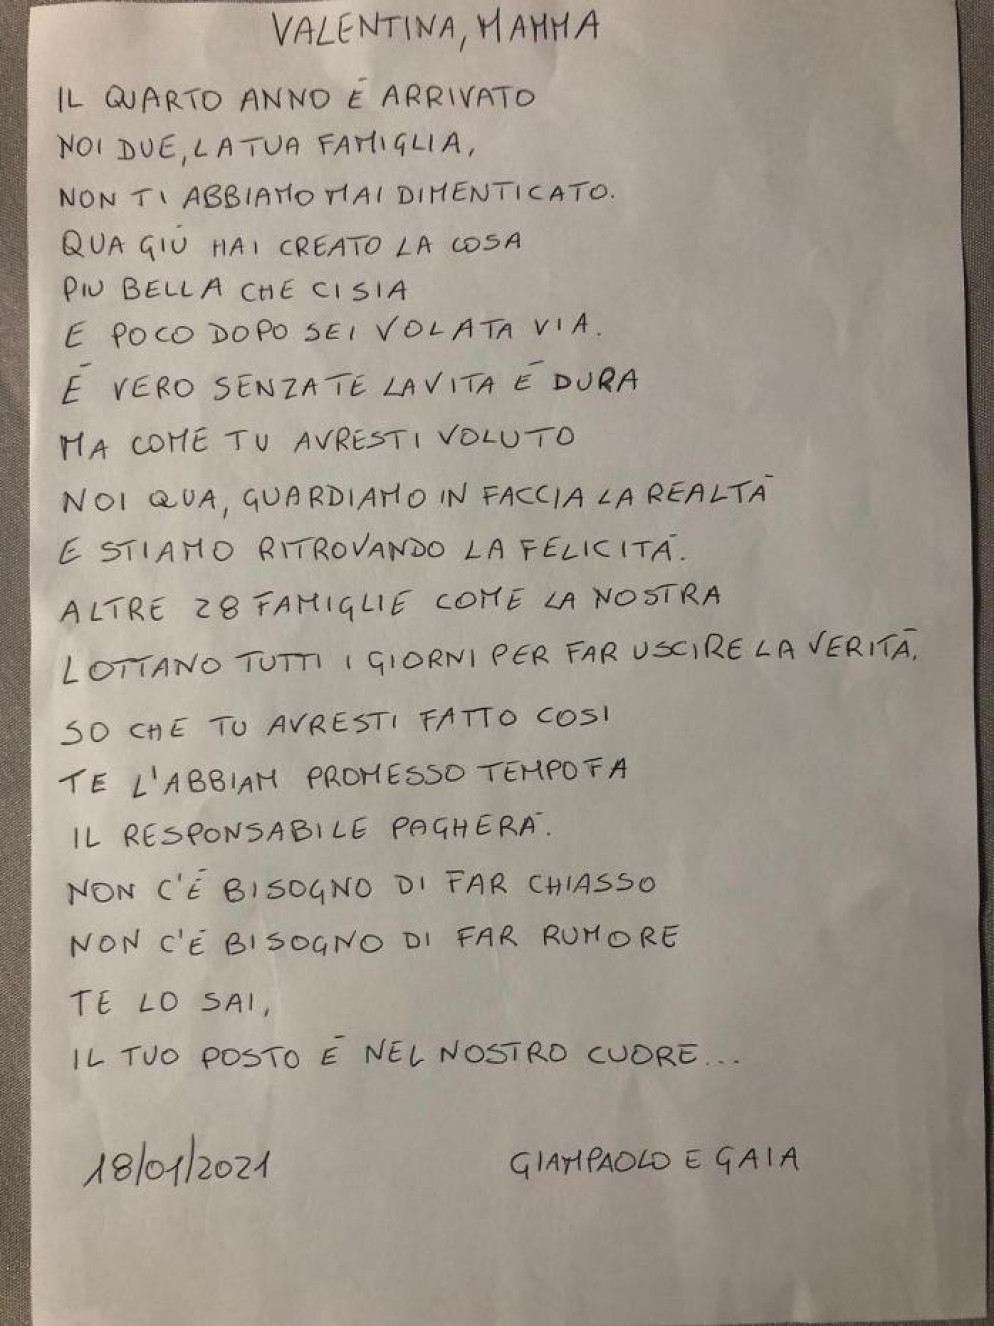 VALENTINA, MAMMA
IL QUARTO ANNO É ARRIVATO
NOI DUE, LA TUA FAMIGLIA,
NON TI ABBIAMO MAI DIMENTICATO.
QUA GIÙ HAI CREATO LA COSA
PIU BELLA CHE CI SIA
E POCO DOPO SEI VOLATA VIA.
É VERO SENZA TE LA VITA É DURA
MA COME TU AVRESTI VOLUTO
NOI QUA, GUARDIAMO IN FACCIA LA REALTÀ
E STIAMO RITROVANDO LA FELICITÀ.
ALTRE 28 FAMIGLIE COME LA NOSTRA
LOTTANO TUTTI I GIORNI PER FAR USCIRE LA VERITÀ,
SO CHE TU AVRESTI FATTO COSI
TE L'ABBIAM PROMESSO TEMPO FA
IL RESPONSABILE PAGHERÀ.
NON C'É BISOGNO DI FAR CHIASSO
NON C'É BISOGNO DI FAR RUMORE
TE LO SAI,
IL TUO POSTO É NEL NOSTRO CUORE...
18/01/2021 GIAMPAOLO E GAIA